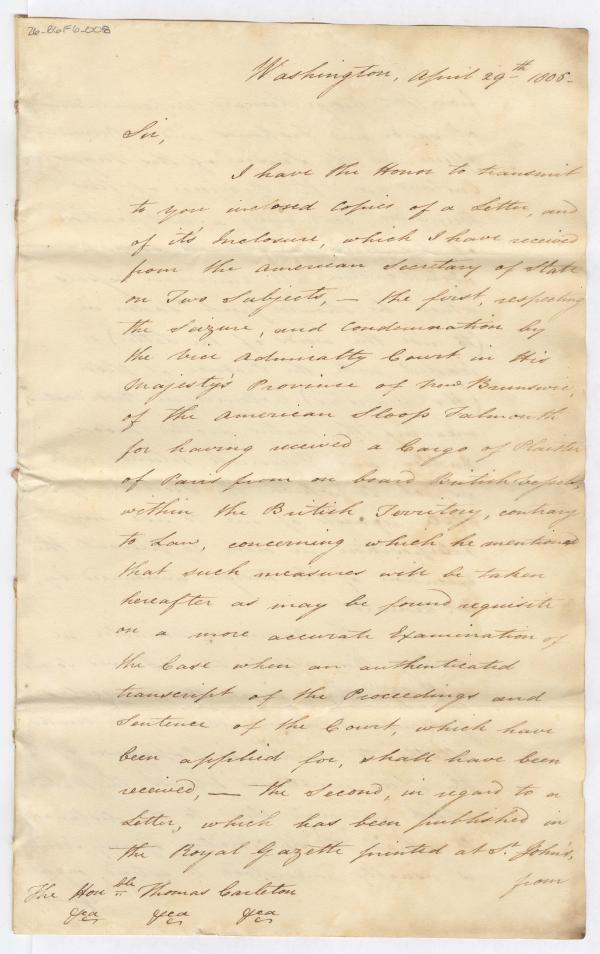 26-86F6-008
Washington, April 29th 1806-
Sir,
I have the Honor to transmit
to you inclosed Copies of a Letter, and
of it's Inclosure, which I have received
from the American Secretary of State
on Two Subjects, — the first, respecting
the Seizure, and Condemnation by
the Vice Admiralty Court in His
Majesty's Province of New Brunswic,
of the American Sloop Falmouth
for having received a Cargo of Plaister
of Paris from on board British Vessels,
within the British Territory, contrary
to Law, concerning which he mentioned
that such measures will be taken
hereafter as may be found requisite
on a more accurate Examination of
the Case when an authenticated
transcript of the Proceedings and
Sentence of the Court, which have
been applied for, shall have been
received, — the Second, in regard to a
Letter, which has been published in
the Royal Gazette printed at St. John's,
from
The Honble Thomas Carleton
&ca &ca &ca